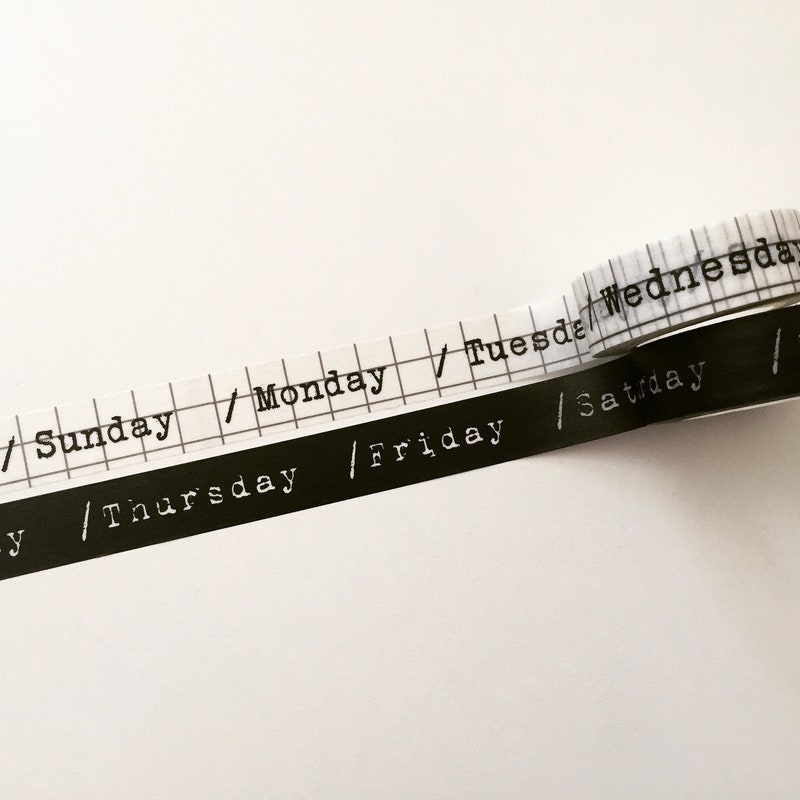 / Sunday / Monday / Tuesda / Wednesday
y / Thursday / Friday / Saturday /